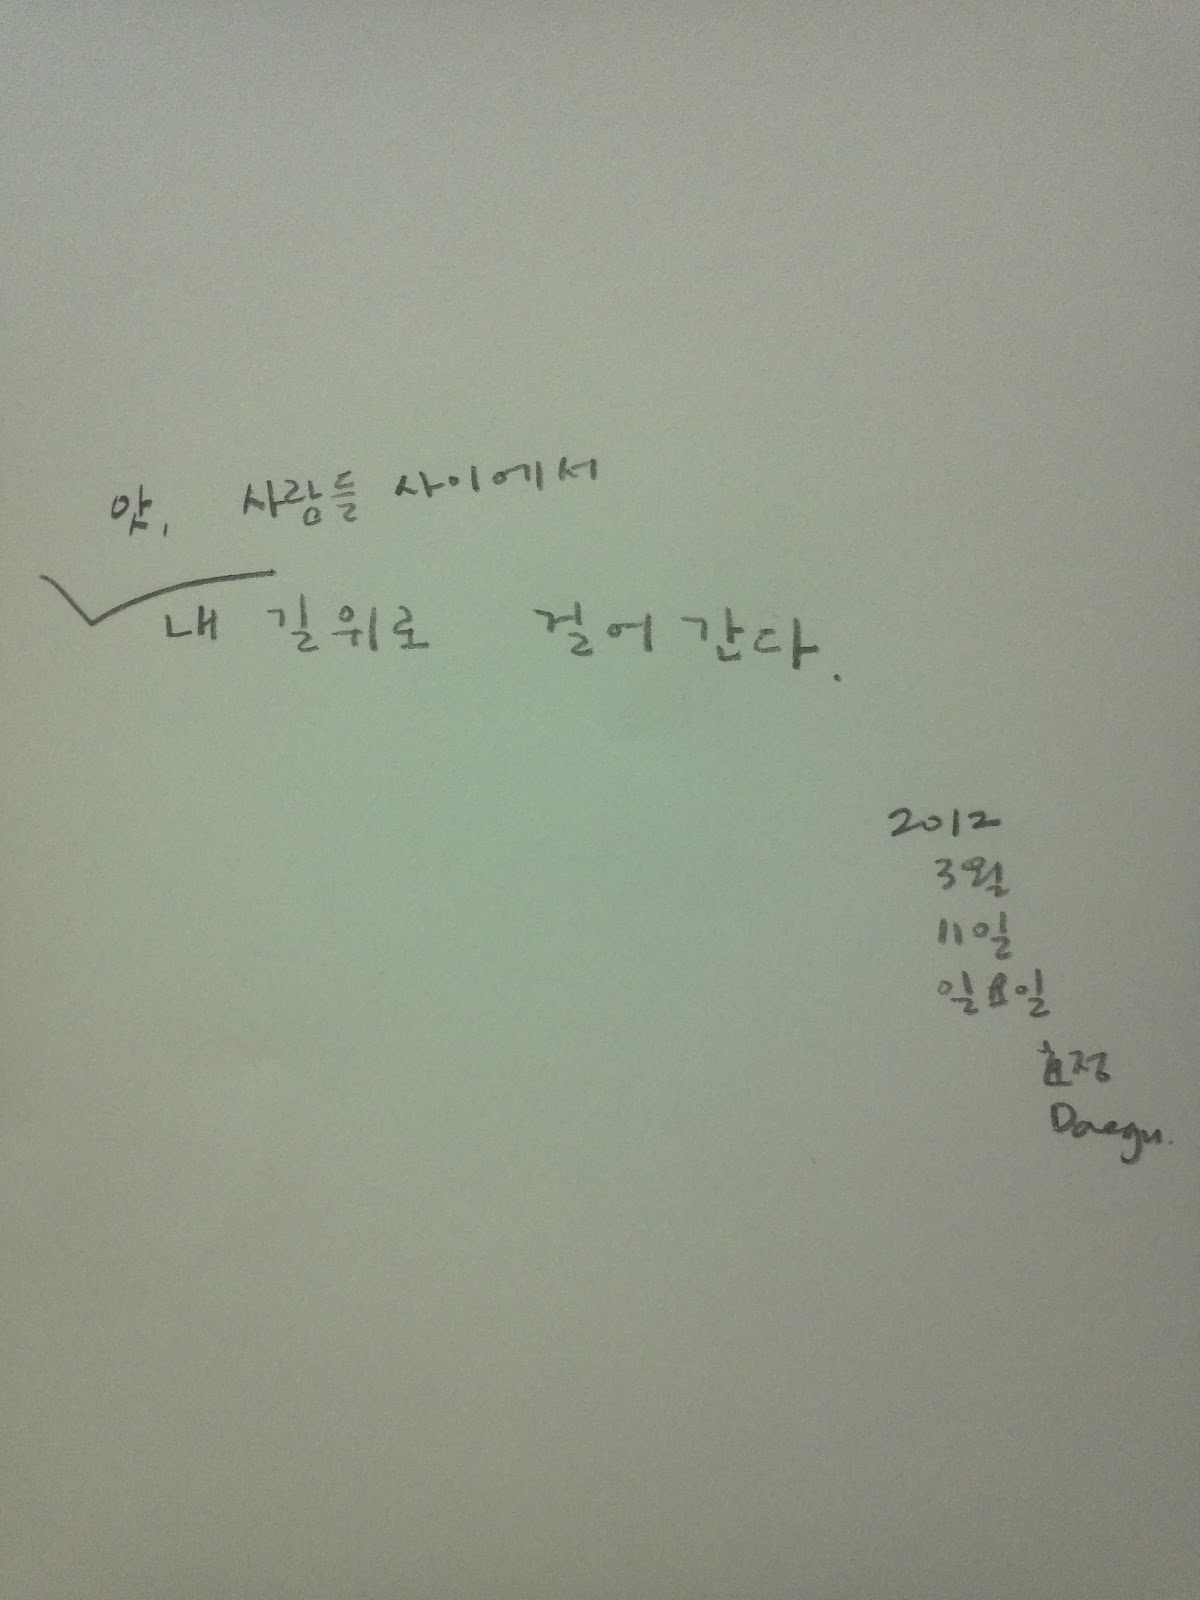 앗, 사람들 사이에서
내 길위로 걸어 간다.
2012
3월
11일
일요일
효정
Daegu.